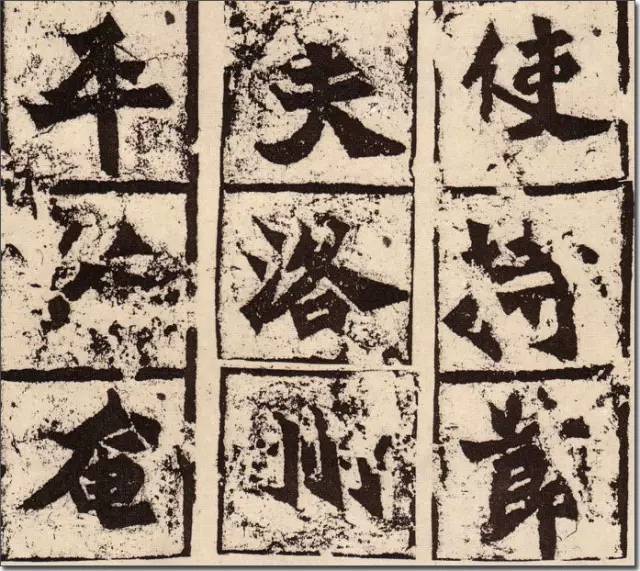 使持節
夫洛州
平公奄